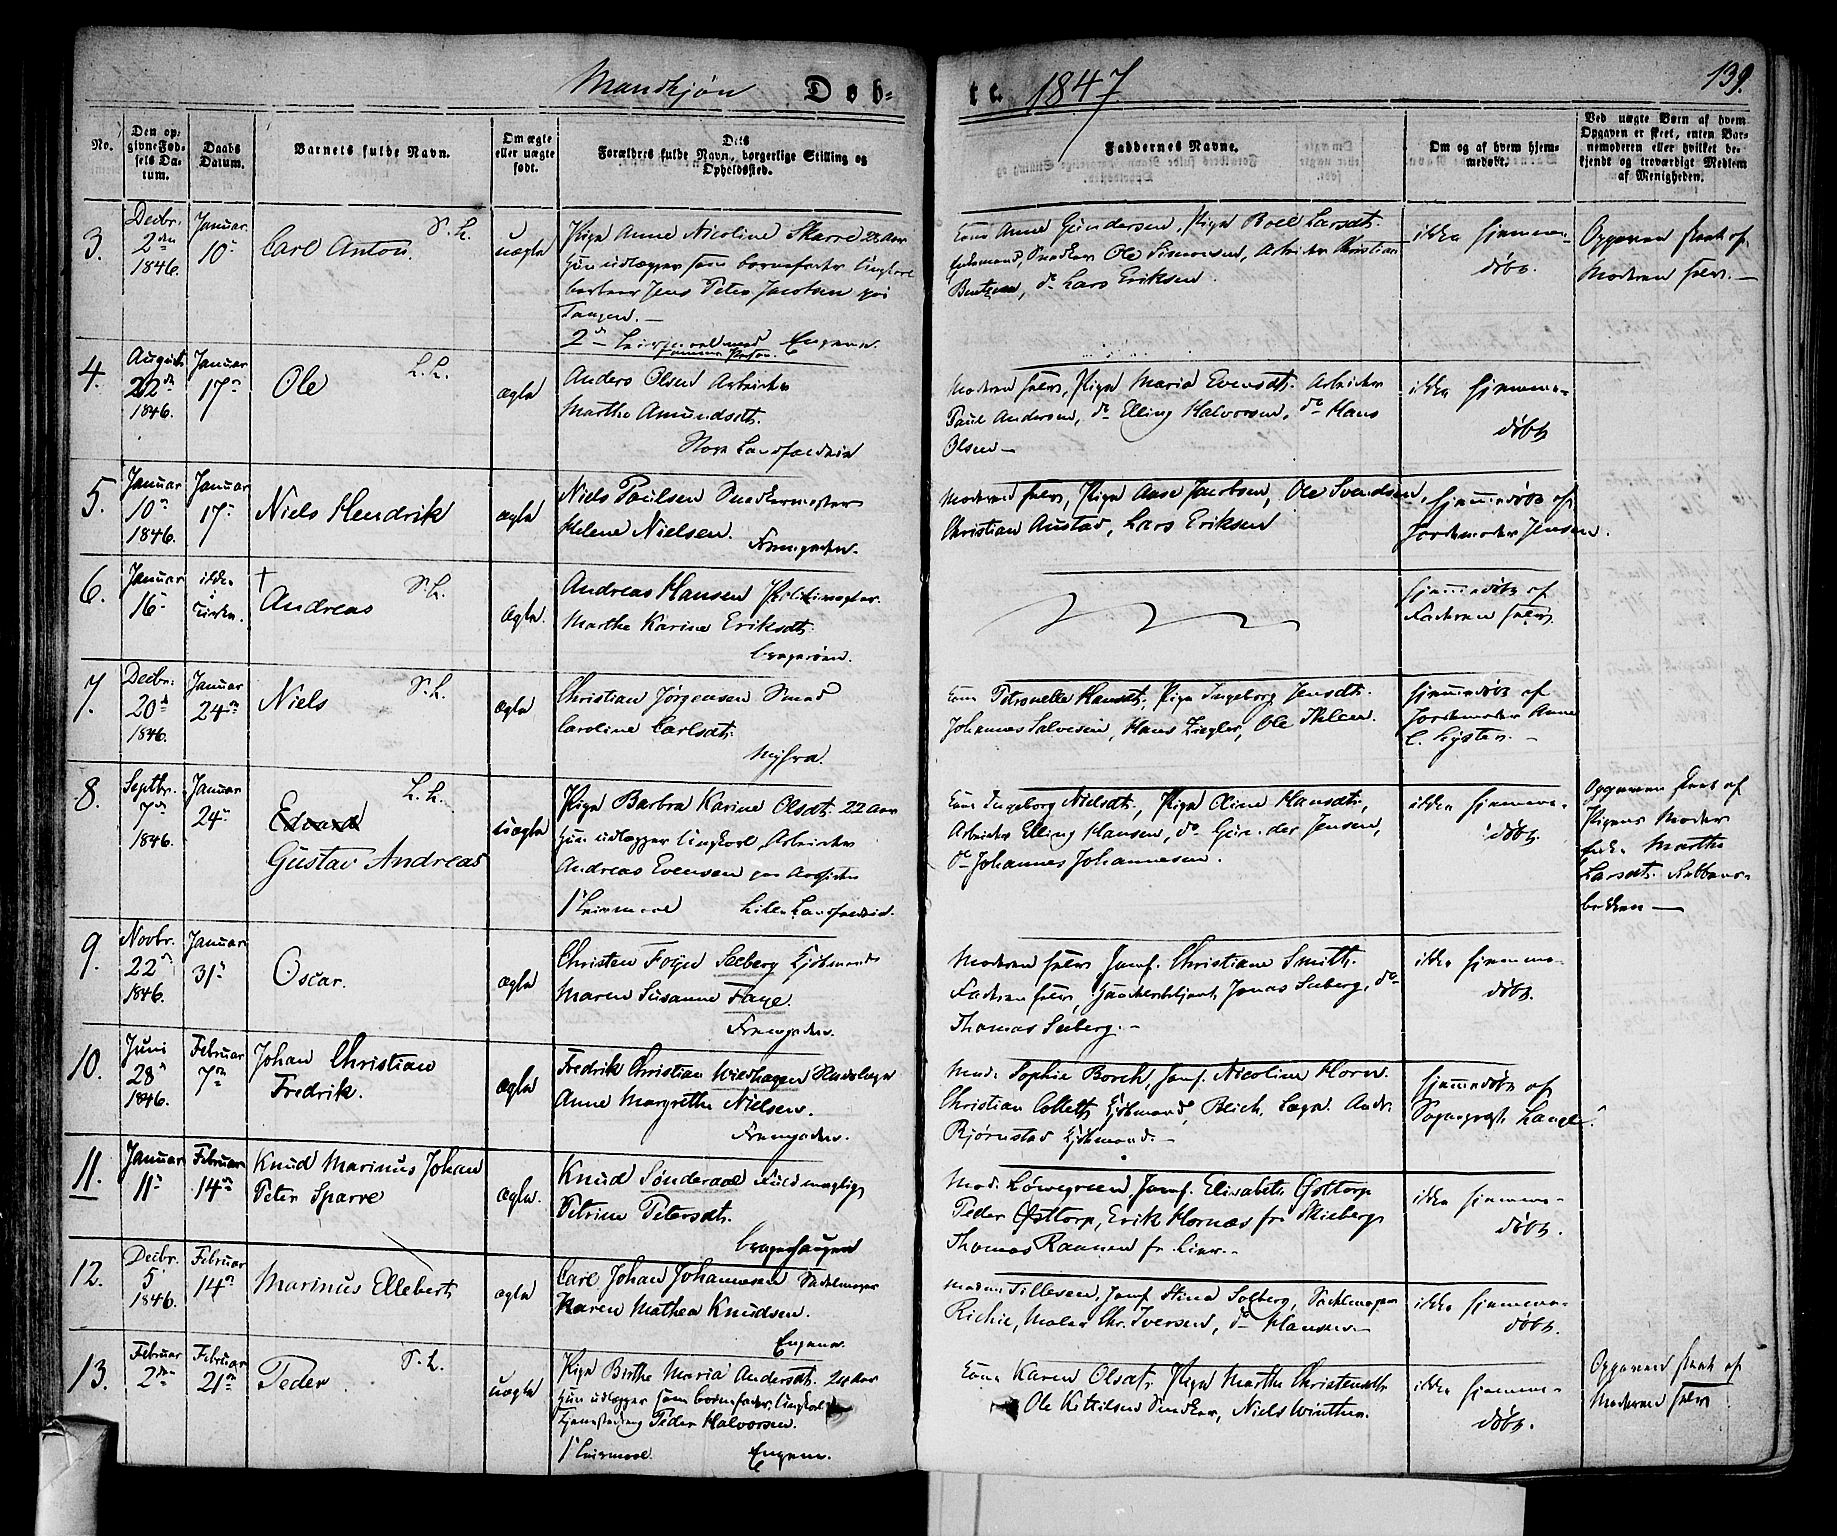 Mandkjøn Døb-
te 1847
139.
No.
Den op-
givne Fød-
sels Da-
tum.
Daabs
Datum.
Barnets fulde Navn.
Om ægte
eller uægte
født.
Dets
Forældres fulde Navn, borgerlige Stilling og
Opholdssted.
Faddernes Navne.
Om og af hvem hjem-
medøbt.
Ved uægte Børn af hvem
Opgaven er skeet, enten Bar-
nemoderen eller hvilket be-
kjendt og troværdigt Medlem
af Menigheden.
3.
Decbr.
2den
1846.
Januar
10
S. L.
Carl Anton
uægte
Pige Anne Nicoline Skarre 28 Aar
hun udlægger som barnefader Ungkarl
Jens Peter Jacobsen paa
Tangen.
2 Leiermaal med Engene
samme Person.
Kone Anne Gundersen, Pige Boel Larsdt.
Snedker Ole Simonsen, Arbeider Christian
Bentsen, do Lars Eriksen.
ikke hjemme-
døbt.
Opgaven skeet af
Moderen selv.
4.
August
22de
1846.
Januar
17
L. L.
Ole
ægte
Anders Olsen Arbeider
Marthe Amundsdt.
Store Landfaldøen
Moderen selv, Pige Maria Evensdt. Arbeider
Paul Andersen, do Elling Halvorsen, do Hans
Olsen
ikke hjemme-
døbt
5.
Januar
10
1846.
Januar
17
Niels Hendrik
ægte
Niels Paulsen Snedkermester
Helene Nielsen.
Strømgaden.
Moderen selv, Pige Anne Jacobsen, Ole Svendsen,
Christian Austad, Lars Eriksen
hjemmedøbt af
Jordemoder Jensen.
6.
Januar
16
ikke
i
Kirken.
S. L.
† Andreas
ægte.
Andreas Hansen Politivægter.
Marthe Karine Eriksdt.
Bragerøen.
hjemmedøbt af
Faderen selv.
7.
Decbr.
20de
1846.
Januar
24
S. L.
Niels
ægte
Christian Jørgensen Smed
Caroline Carlsdt.
Kone Petronelle Hansdt, Pige Ingeborg Jensdt.
Johannes Salvesen, Hans Ziegler, Ole Thleen.
hjemmedøbt af
Jordemoder Anne
C. Lysten.
8.
Septbr.
7de
1846.
Januar
24
L. L.
Edvard
Gustav Andreas
uægte
Pige Barbra Karine Olsdt. 22 Aar
hun udlægger Ungkarl, Arbeider
Andreas Evensen
1 Leiermaal Lille Landfaldøen.
Kone Ingeborg Nielsdt, Pige Oline Hansdt,
Arbeider Elling Hansen, do Gunder Jensen,
do Johannes Johannesen.
ikke hjemme-
døbt.
Opgaven skeet af
Pigens Moder
Enke Marthe
Larsdt.
bakken
9.
Novbr.
22
1846.
Januar
31
Oscar.
ægte
Christen Foyn Seeberg Kjøbmand
Maren Susanne Faye.
Strømgaden.
Moderen selv Jomf. Christiane Smith.
Faderen selv, Handelsbetjent Jonas Seeberg, do
Thomas Seeberg.
ikke hjemme-
døbt.
10.
Juni
28
1846.
Februar
7
Johan Christian
Fredrik.
ægte
Fredrik Christian Wiedhagen
Anne Margrethe Nielsen.
Strømgaden.
Mad. Sophie Borch, Jomf. Nicoline Horn.
Christian Collett Kjøbmand, Blich, Andr.
Bjørnstad Kjøbmand.
hjemmedøbt af
Sognepræst Lange.
11.
Januar
11
Februar
14
Knud Marinus Johan
Peter Sparre
ægte.
Knud Sønderaal Fuldmægtig
Petrine Petersdt.
Bragerhaugen
Mad. Løwegreen, Jomf. Elisabeth Østtorp
Peder Østtorp, Erik Hornæs fr Skieberg
Thomas Raanen fr Lier.
ikke hjemme-
døbt.
12.
Decbr.
5
1846.
Februar
14
Marinus Ellebert
ægte
Carl Johan Johannesen Sadelmager
Karen Mathea Knudsen.
Engene.
Madm Tillesen, Jomf Stina Solberg, Sadelmager
Richie, Maler Chr. Iversen, do Hansen.
ikke hjemme-
døbt.
13.
Februar
2den
Februar
21
S. L.
Peder
uægte
Pige Birthe Maria Andersdt. 24 Aar
hun udlægger som barnefader Ungkarl
Tjenestedreng Peder Halvorsen.
1 Leiermaal. Engene.
Kone Karen Olsdt, Pige Marthe Christensdt,
Ole Kittilsen Snedker, Niels Winther.
ikke hjemme-
døbt.
Opgaven skeet af
Moderen selv